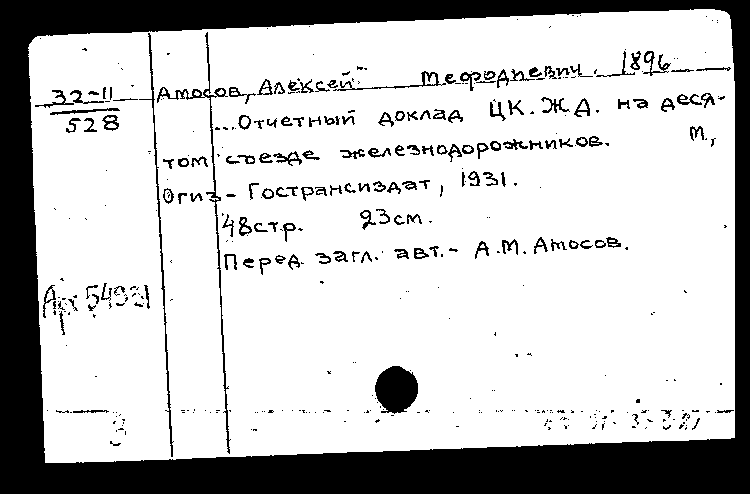 32-11
528
Амосов, Алексей Мефодиевич. 1896
...Отчетный доклад ЦК.ЖД. на деся-
том съезде железнодорожников. М.,
Огиз - Гострансиздат, 1931.
48стр. 23см.
Перед загл. авт.- А.М.Амосов.
Арх 54921
3